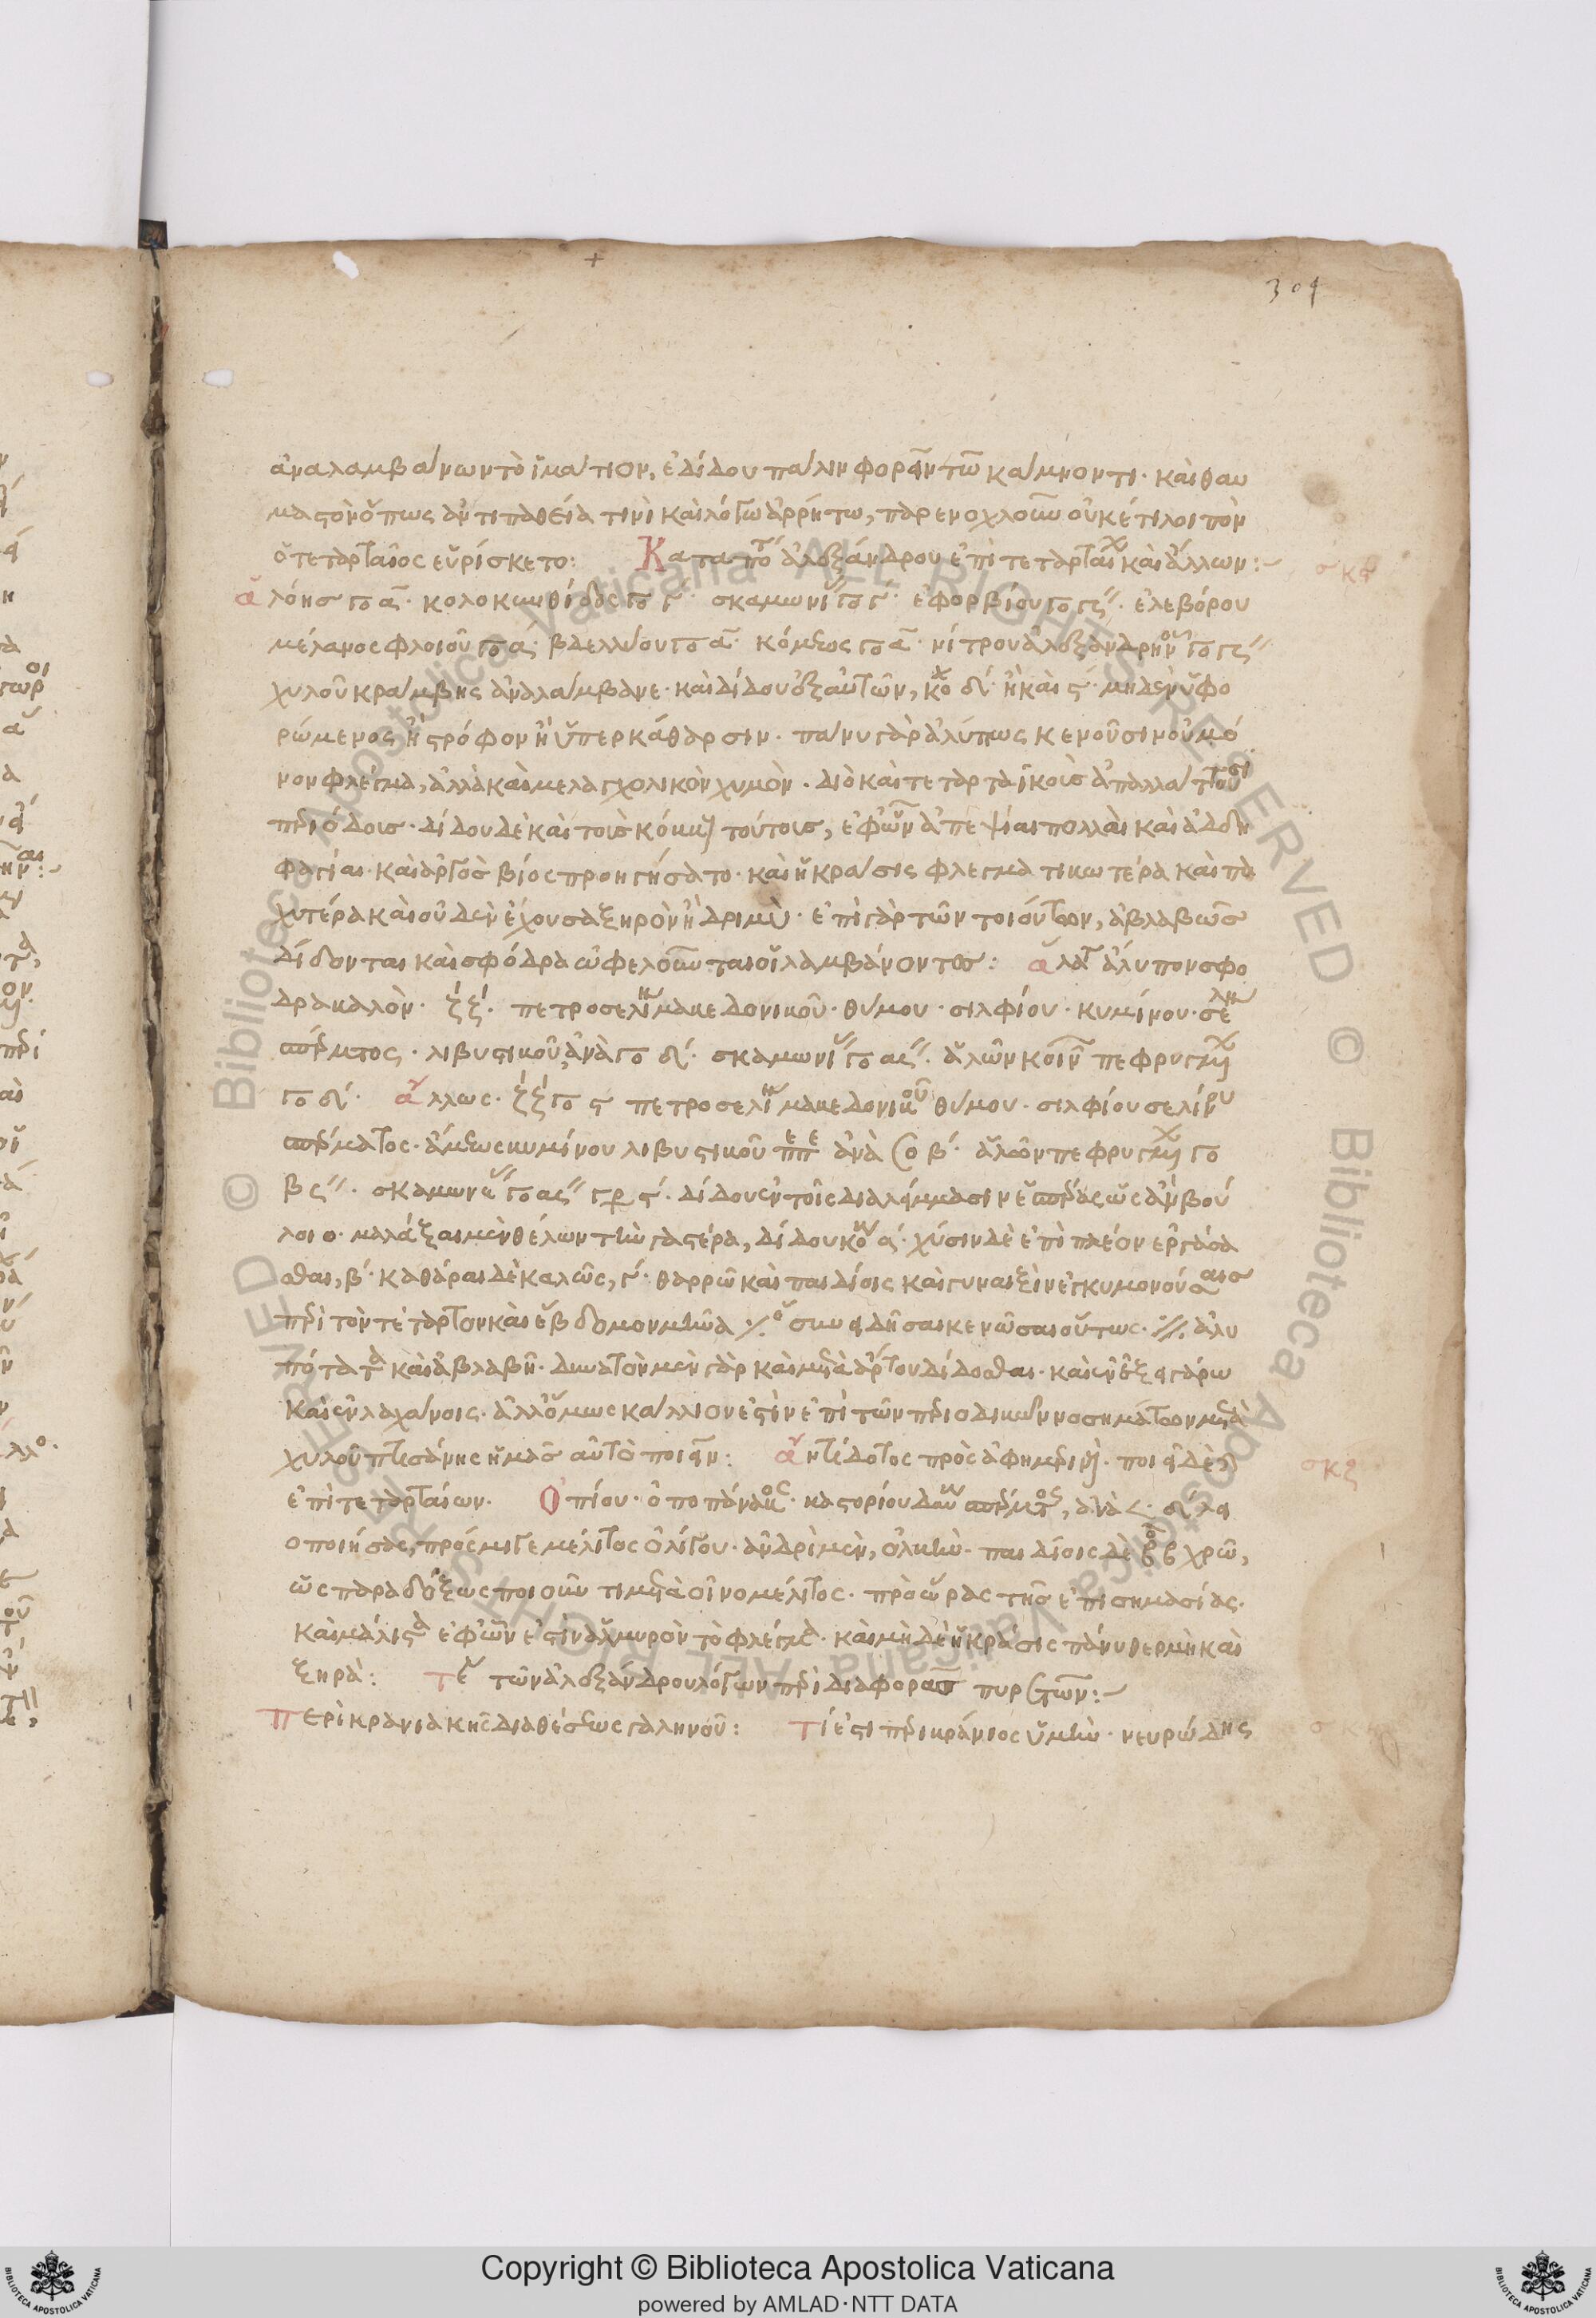 304
ἀναλαμβάνων τὸ ἱμάτιον, ἐδίδου πάλιν φορεῖν τῶ κάμνοντι· καὶ θαυ
μαστὸν ὅπως ἀντιπαθεία τινὶ καὶ λόγω ἀρρήτω, παρενοχλούμ οὐκέτι λοιπὸν
ὁ τεταρταῖος εὑρίσκετο: Καταπό ἀλεξάνδρου ἐπὶ τεταρταϊκ καὶ ἄλλων:
ἀλόης γο α· κολοκυνθίδος γο γ· σκαμωνί γο γ· εφορβίου γο γς· ἐλεβόρου
μέλανος φλοιοῦ γο α· βδελλίου γο α· κόμεως γο α· νίτρου ἀλεξανδρην γο γς
χυλοῦ κράμβης ἀναλάμβανε· καὶ δίδου ἐξ αὐτῶν, κο δι· ἢ καὶ ς· μηδὲν ὑφο
ρώμενος ἢ στρόφον ἢ ὑπερκάθαρσιν· πάνυ γὰρ ἀλύπως κενοῦσιν οὐ μό
νον φλέγμα, ἀλλὰ καὶ μελαγχολικὸν χυμὸν· διὸ καὶ τεταρταϊκοῖς ἀπαλλάττουσι
περιόδοις· δίδου δὲ καὶ τοῖς κόκκ τούτοις, ἐφ' ὧν ἀπεψίαι πολλαὶ καὶ ἀδδη
φαγίαι· καὶ ἀργὸς βίος προηγήσατο· καὶ ἡ κράσις φλεγματικωτέρα καὶ πα
χυτέρα καὶ οὐδὲν ἔχουσα ξηρὸν ἢ δριμὺ· ἐπὶ γὰρ τῶν τοιούτων, ἀβλαβῶς
δίδονται καὶ σφόδρα ὠφελοῦνται οἱ λαμβάνοντες: ἅλατ ἄλυπον σφο
δρα καλὸν· ξξ· πετροσελίν μακεδονικοῦ· θύμου· σιλφίου· κυμίνου· σελίν
σπέρματος· λιβυστικοῦ ἀνὰ γο δι· σκαμωνί γο ας· ἁλῶν κοιν πεφρυγμ
γο δι· ἄλλως· ξξ γο ς πετροσελίν μακεδονικοῦ θύμου· σιλφίου σελίνου
σπέρματος· ἄμεως κυμίνου λιβυστικοῦ πεπε ἀνὰ γο β· ἁλῶν πεφρυγμ γο
βς· σκαμων γο ας γρ ς· δίδου ἐν τοῖς διαλείμμασιν ἑσπέρας ὡς ἂν βού
λοιο· μαλάξαι μὲν θέλων τὴν γαστέρα, δίδου κο α· χύσιν δὲ ἐπὶ πλέον ἐργάσα
σθαι, β· καθάραι δὲ καλῶς, γ· θαρρῶν καὶ παιδίοις καὶ γυναιξὶν ἐγκυμονούσαις
περὶ τὸν τέταρτον καὶ ἕβδομον μῆνα συνείδησαι κενῶσαι οὕτως· ἀλυ
πότατα καὶ ἀβλαβῆ· δυνατὸν μὲν γὰρ καὶ μετὰ ἄρτου δίδοσθαι· καὶ ἐν ἐξ γάρω
καὶ ἐν λαχάνοις· ἀλλ' ὅμως κάλλιον ἐστὶν ἐπὶ τῶν περιοδικῶν νοσημάτων μετὰ
χυλοῦ πτισάνης ἡμᾶς αὐτὸ ποιεῖν: ἀντίδοτος πρὸς ἀφημερινο· ποιεῖ δὲ
ἐπὶ τεταρταίων. Ὀπίου· ὀποπάνακος· καστορίου δαυ σπέρματος, ἀνὰ δι λει
οποιήσας, πρόσμιγε μέλιτος ὀλίγου· ἀνδρὶ μὲν, ὁλκὴν· παιδίοις δὲ χρῶ,
ὡς παραδόξως ποιοῦντι μετὰ οἰνομέλιτος· πρὸ ὥρας τῆς ἐπισημασίας·
καὶ μάλιστα ἐφ' ὧν ἐστὶν ἁλμυρὸν τὸ φλέγμα· καὶ μὴ δὲ ἡ κράσις πάνυ θερμὴ καὶ
ξηρὰ: τέ τῶν ἀλεξάνδρου λόγων περὶ διαφορας πυρετῶν:
Περὶ κρανιακῆς διαθέσεως γαληνοῦ: Τί ἐστι περικράνιος ὑμὴν· νευρώδης
σκς
σκζ
σκη
Copyright © Biblioteca Apostolica Vaticana
powered by AMLAD·NTT DATA